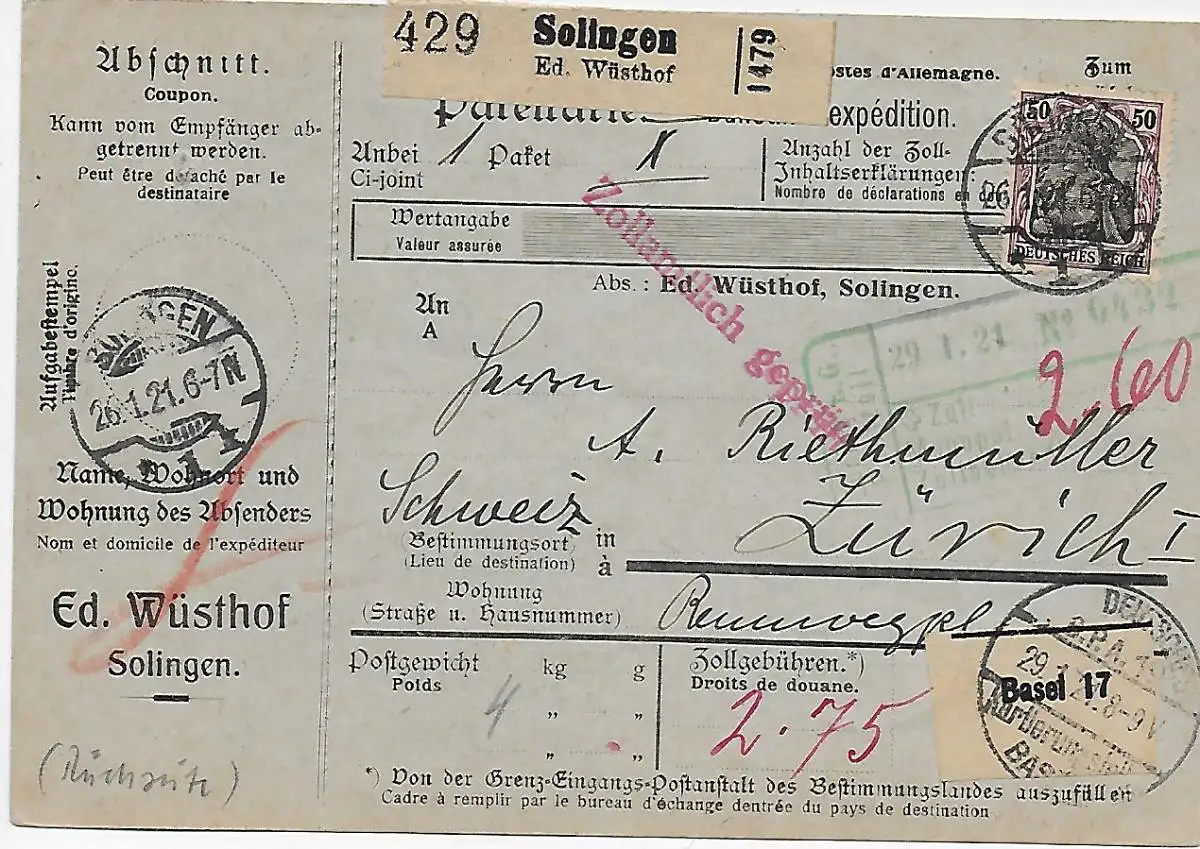 Abschnitt.
Coupon.
Kann vom Empfänger ab-
getrennt werden.
Peut être détaché par le
destinataire
Aufgabestempel
Timbre d'origine.
26.1.21.6-7N
Name, Wohnort und
Wohnung des Absenders
Nom et domicile de l'expéditeur
Ed. Wüsthof
Solingen.
(Rückseite)
429
Solingen
Ed. Wüsthof
1479
ostes d'Allemagne.
Zum
expédition.
Anbei 1 Paket
Ci-joint
Anzahl der Zoll-
Inhaltserklärungen:
Nombre de déclarations en
50 50
DEUTSCHES REICH
Wertangabe
Valeur assurée
Zollamtlich geprüft
Abs.: Ed. Wüsthof, Solingen.
29 1. 21 No 6432
2.60
An
A
Herrn
A. Riethmüller
Schweiz
Zürich I
(Bestimmungsort) in
(Lieu de destination) à
Wohnung
(Straße u. Hausnummer)
Rennwegpl
Postgewicht kg g
Poids
4 " "
" "
Zollgebühren.*)
Droits de douane.
2.75
Basel 17
29.1.21.8-9V
*) Von der Grenz-Eingangs-Postanstalt des Bestimmungslandes auszufüllen
Cadre à remplir par le bureau d'échange dentrée du pays de destination